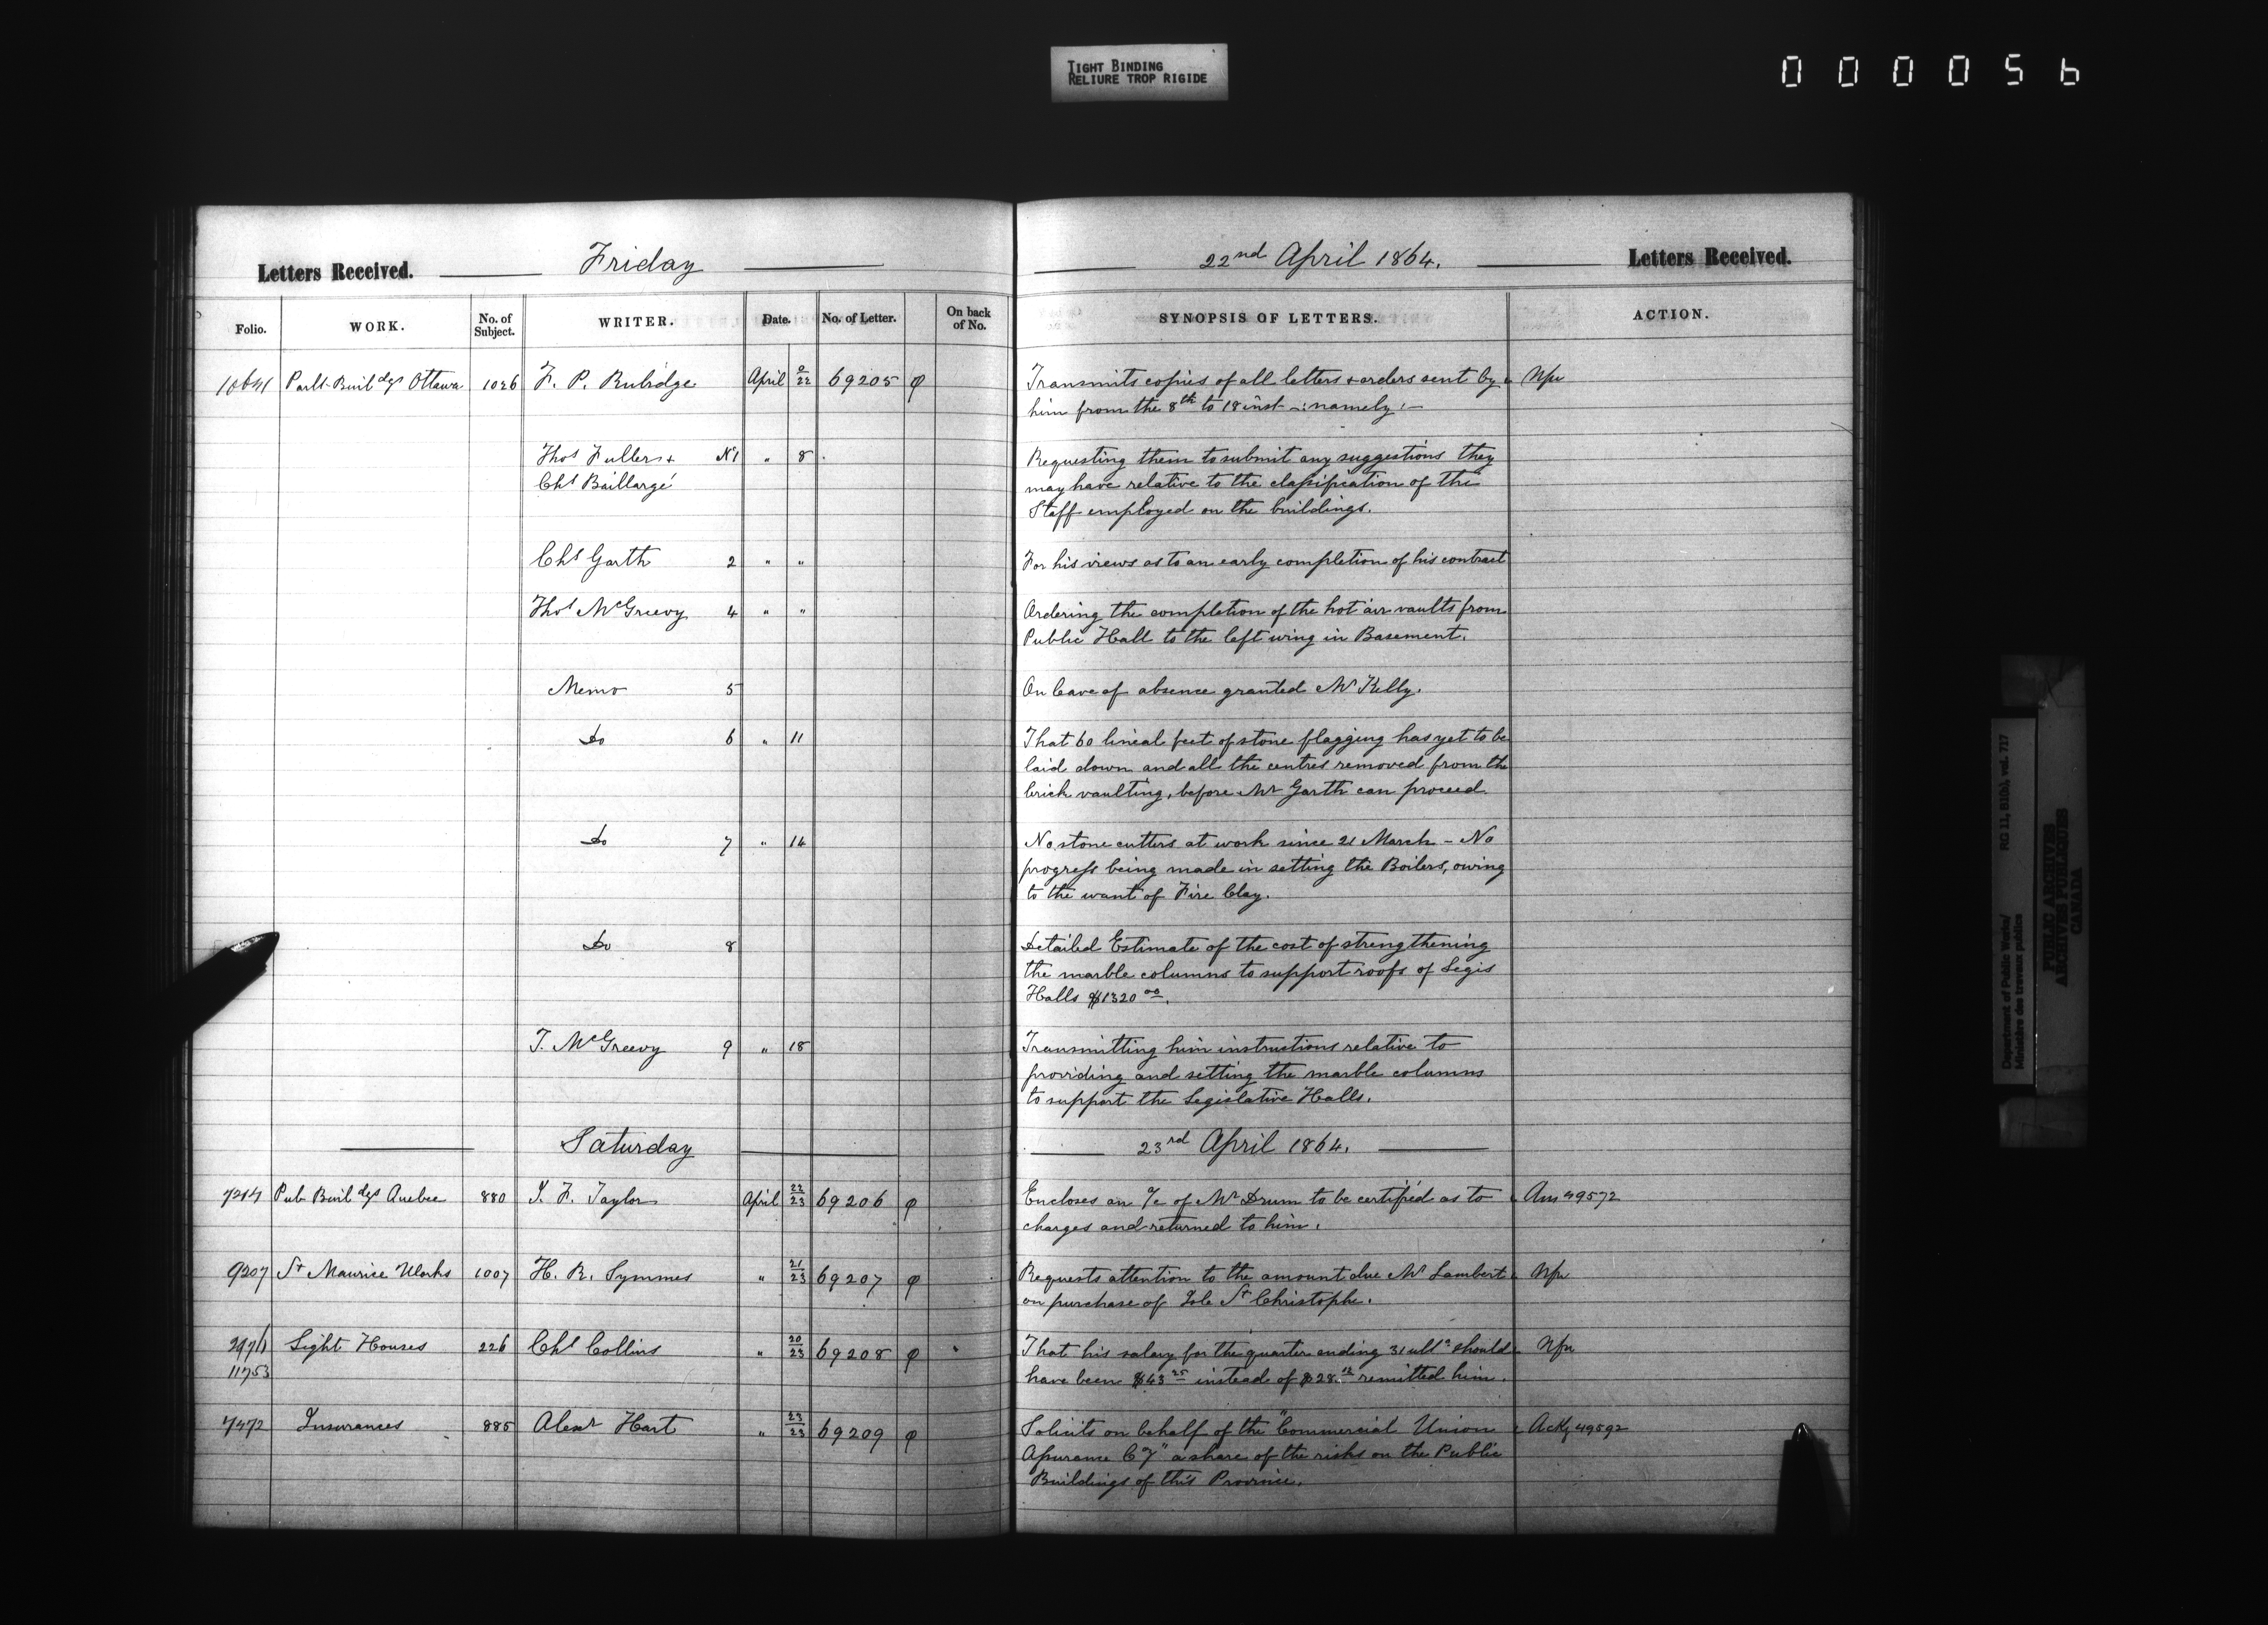 TIGHT BINDING
RELIURE TROP RIGIDE
0 0 0 0 5 6
Letters Received. Friday 22nd April 1864. Letters Received.
Folio. WORK. No. of Subject. WRITER. Date. No. of Letter. On back of No. SYNOPSIS OF LETTERS. ACTION.
Parlt Buildgs Ottawa 1026 F. P. Rubidge April 22 69205 φ Transmits copies of all letters & orders sent by
him from the 8th to 18 inst -: namely :-
Thos Fuller & No 1 " 8 Requesting them to submit any suggestions they
Chs Baillargé may have relative to the classification of the
Staff employed on the buildings.
Chs Garth 2 " " For his views as to an early completion of his contract
Thos McGreevy 4 " " Ordering the completion of the hot air vaults from
Public Hall to the left wing in Basement.
Memo 5 On leave of absence granted Mr Kelly.
Do 6 " 11 That 60 lineal feet of stone flagging has yet to be
laid down and all the centres removed from the
brick vaulting, before Mr Garth can proceed.
Do 7 " 14 No stone cutters at work since 21 March - No
progress being made in setting the Boilers, owing
to the want of Fire Clay.
Do 8 Detailed Estimate of the cost of strengthening
the marble columns to support roofs of Legis
Halls $1320 00.
T. McGreevy 9 " 18 Transmitting him instructions relative to
providing and setting the marble columns
to support the Legislative Halls.
Saturday 23rd April 1864.
7214 Pub Buildgs Quebec 880 J. F. Taylor April 22/23 69206 φ Encloses an a/c of Mr Drum to be certified as to Ans 49572
charges and returned to him.
9207 St Maurice Works 1007 H. R. Symmes " 21/23 69207 φ Requests attention to the amount due Mr Lambert Nfu
on purchase of Isle St Christophe.
Light Houses 226 Chs Collins " 20/23 69208 φ That his salary for the quarter ending 31 ulto should Nfu
11753 have been $43 25 instead of $28 12 remitted him.
7472 Insurances 885 Alexr Hart " 23/23 69209 φ Solicits on behalf of the "Commercial Union Ackg 49592
Assurance Cy" a share of the risks on the Public
Buildings of this Province.
Department of Public Works/
Ministère des travaux publics
RG 11, B1(b), vol. 717
PUBLIC ARCHIVES
ARCHIVES PUBLIQUES
CANADA